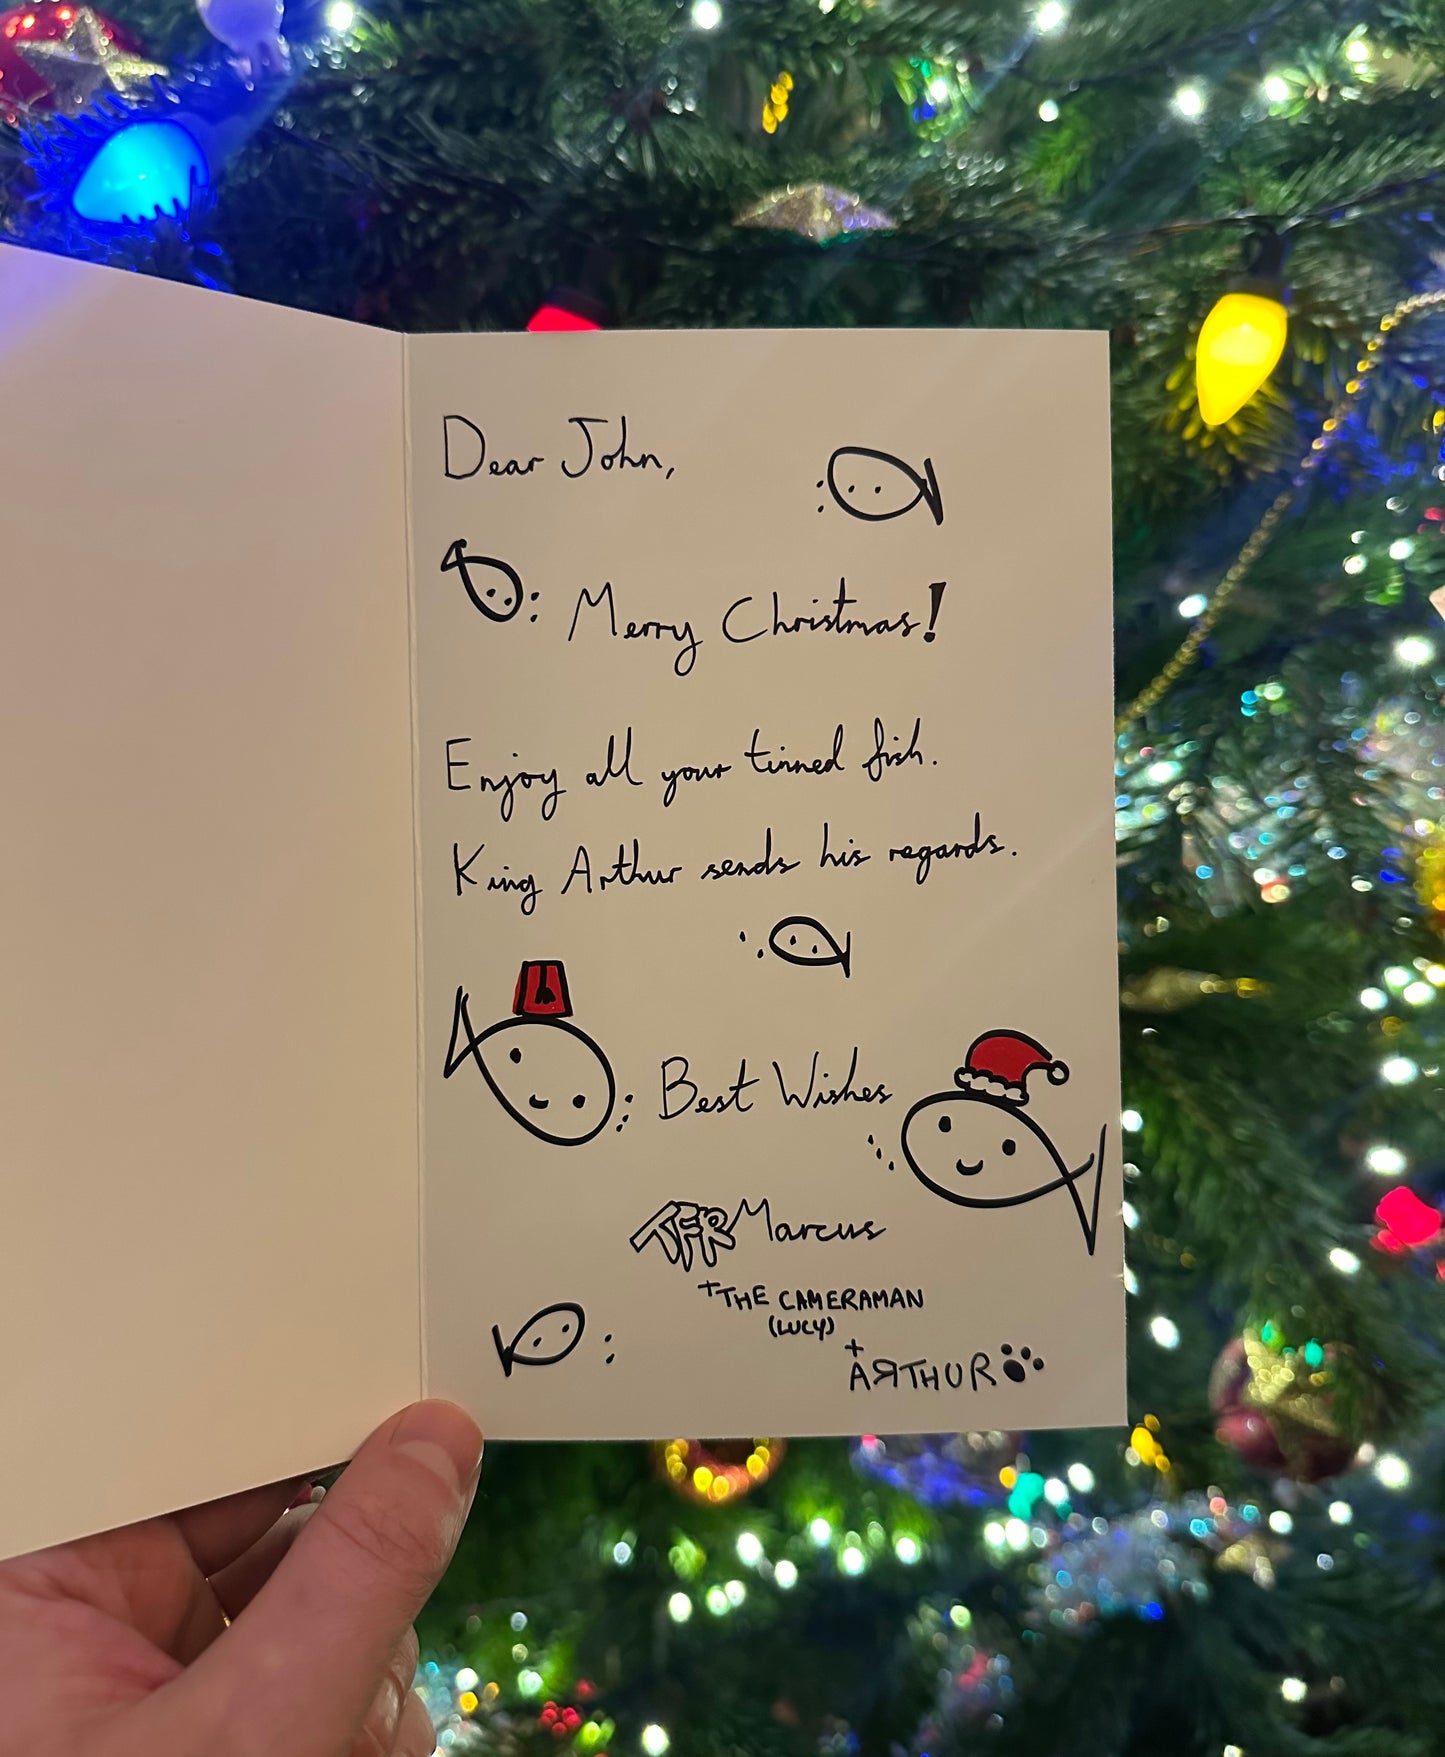 Dear John,
Merry Christmas!
Enjoy all your tinned fish.
King Arthur sends his regards.
Best Wishes
TFR Marcus
+ THE CAMERAMAN
(LUCY)
+
ARTHUR